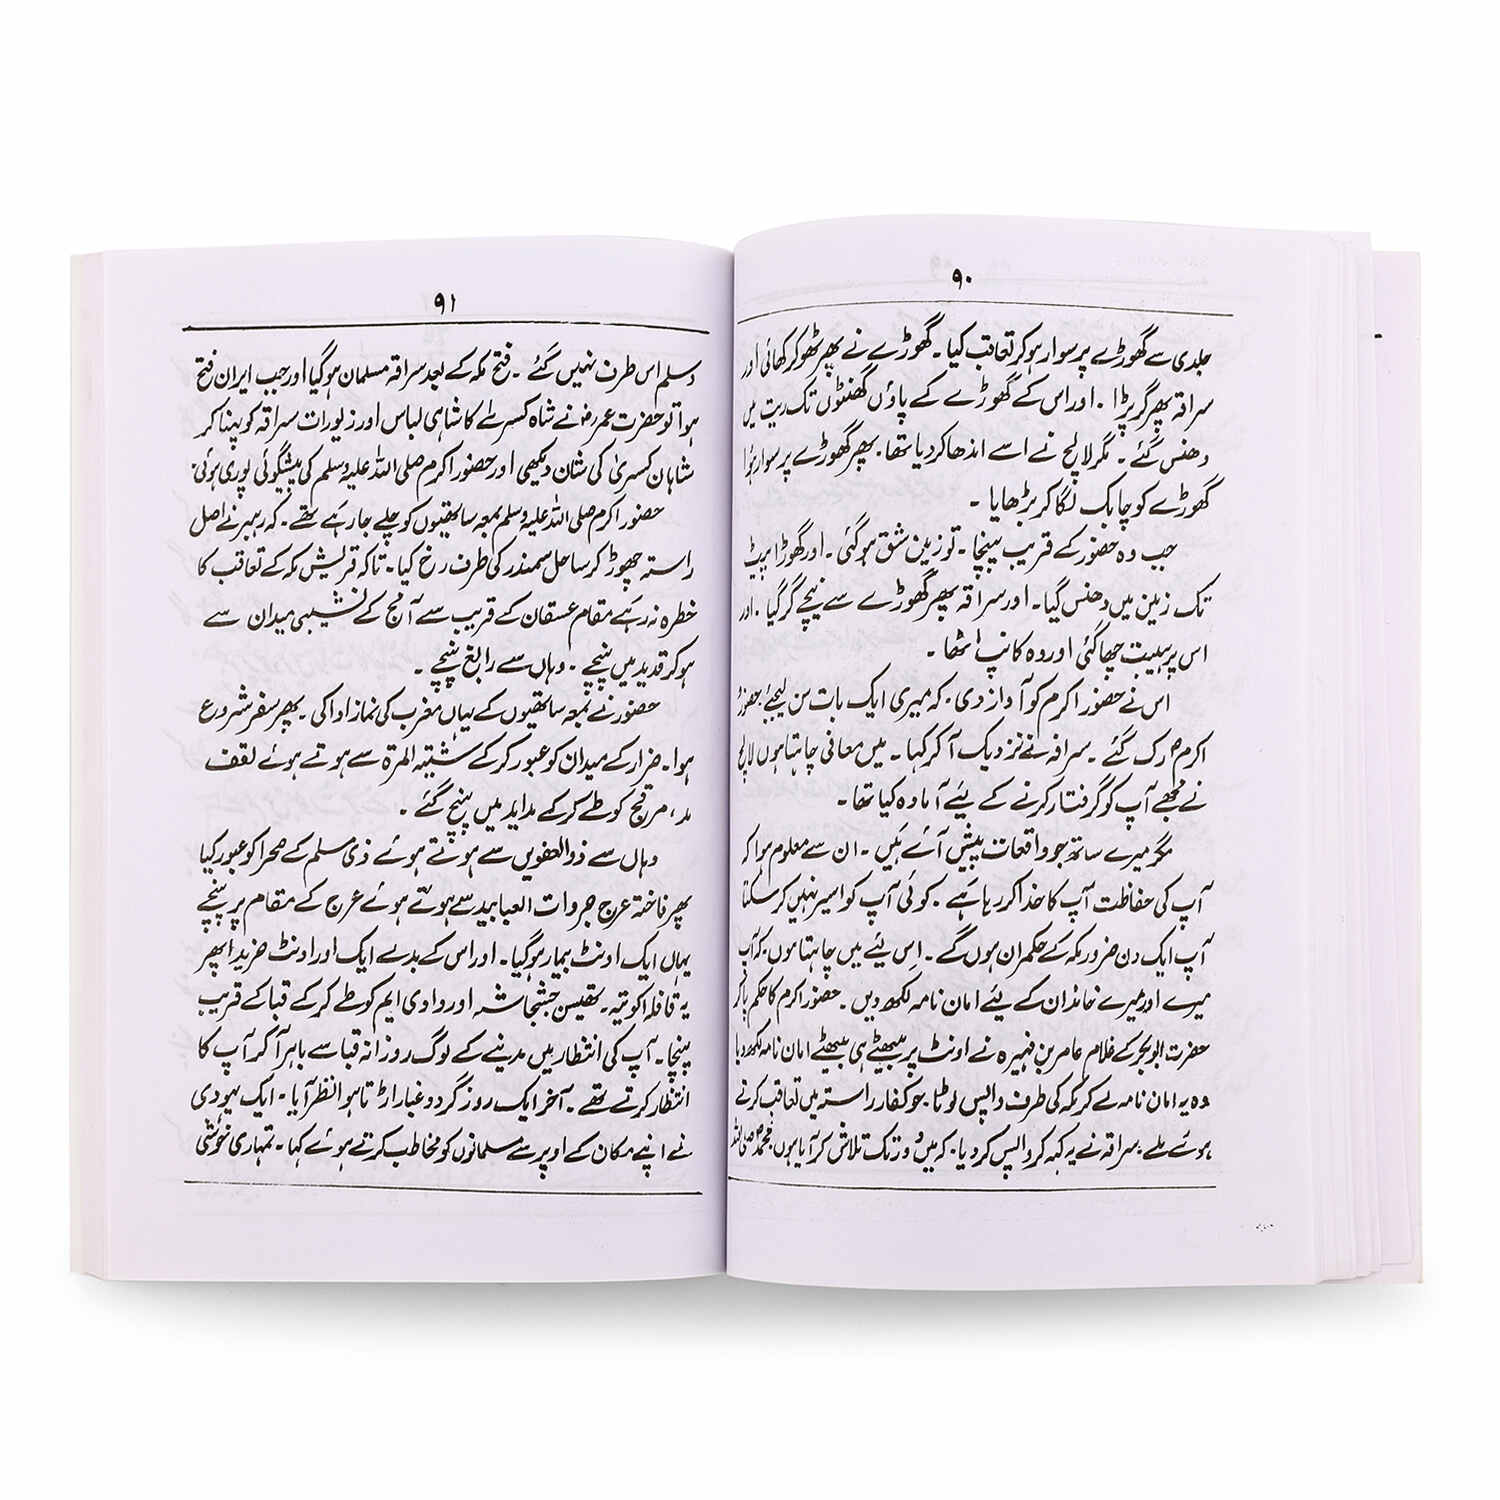 ۹۰
جلدی سے گھوڑے پر سوار ہو کر تعاقب کیا۔ گھوڑے نے پھر ٹھوکر کھائی اور
سراقہ پھر گر پڑا۔ اور اس کے گھوڑے کے پاؤں گھٹنوں تک ریت میں
دھنس گئے۔ مگر لالچ نے اسے اندھا کر دیا تھا۔ پھر گھوڑے پر سوار ہؤا
گھوڑے کو چابک لگا کر بڑھایا۔
جب وہ حضور کے قریب پہنچا۔ تو زمین شق ہو گئی۔ اور گھوڑا پیٹ
تک زمین میں دھنس گیا۔ اور سراقہ پھر گھوڑے سے نیچے گر گیا۔ اور
اس پر ہیبت چھا گئی اور وہ کانپ اٹھا۔
اس نے حضور اکرم کو آواز دی۔ کہ میری ایک بات سن لیجئے۔ حضور
اکرم رک گئے۔ سراقہ نے نزدیک آ کر کہا۔ میں معافی چاہتا ہوں لالچ
نے مجھے آپ کو گرفتار کرنے کے لیئے آمادہ کیا تھا۔
مگر میرے ساتھ جو واقعات پیش آئے ہیں۔ ان سے معلوم ہوا کہ
آپ کی حفاظت آپ کا خدا کر رہا ہے۔ کوئی آپ کو اسیر نہیں کر سکتا
آپ ایک دن ضرور مکہ کے حکمران ہوں گے۔ اِس لیئے میں چاہتا ہوں کہ آپ
میرے اور میرے خاندان کے لیئے امان نامہ لکھ دیں۔ حضور اکرم کا حکم پا کر
حضرت ابوبکر کے غلام عامر بن فہیرہ نے اونٹ پر بیٹھے ہی بیٹھے امان نامہ لکھ دیا
وہ یہ امان نامہ لے کر مکہ کی طرف واپس لوٹا۔ جو کفار راستہ میں تعاقب کرتے
ہوئے ملے۔ سراقہ نے یہ کہہ کر واپس کر دیا۔ کہ میں دور تک تلاش کر آیا ہوں محمد صلی اللہ
۹۱
وسلم اس طرف نہیں گئے۔ فتح مکہ کے بعد سراقہ مسلمان ہو گیا اور جب ایران فتح
ہوا تو حضرت عمرؓ نے شاہ کسریٰ کا شاہی لباس اور زیورات سراقہ کو پہنا کر
شاہان کسریٰ کی شان دیکھی اور حضور اکرم صلی اللہ علیہ وسلم کی پیشگوئی پوری ہوئی۔
حضور اکرم صلی اللہ علیہ وسلم بمعہ ساتھیوں کو چلے جا رہے تھے۔ کہ رہبر نے اصل
راستہ چھوڑ کر ساحل سمندر کی طرف رخ کیا۔ تاکہ قریش مکہ کے تعاقب کا
خطرہ نہ رہے مقام عسقان کے قریب سے آمج کے نشیبی میدان سے
ہو کر قدید میں پہنچے۔ وہاں سے رابغ پہنچے۔
حضور نے بمعہ ساتھیوں کے یہاں مغرب کی نماز ادا کی۔ پھر سفر شروع
ہوا۔ خزار کے میدان کو عبور کر کے شبتہ المرۃ سے ہوتے ہوئے لقف
مد، مرتجح کو طے کر کے مداید میں پہنچ گئے۔
وہاں سے ذوالعفویں سے ہوتے ہوئے ذی سلم کے صحرا کو عبور کیا
پھر فاختہ عرج جروات العبابید سے ہوتے ہوئے عرج کے مقام پر پہنچے
یہاں ایک اونٹ بیمار ہو گیا۔ اور اس کے بدلے ایک اور اونٹ خریدا پھر
یہ قافلہ اکوتیہ۔ بقیسن جبشجاشہ اور وادی ایم کو طے کر کے قبا کے قریب
پہنچا۔ آپ کی انتظار میں مدینے کے لوگ روزانہ قبا سے باہر آ کر آپ کا
انتظار کرتے تھے۔ آخر ایک روز گرد و غبار اڑتا ہوا نظر آیا۔ ایک یہودی
نے اپنے مکان کے اوپر سے مسلمانوں کو مخاطب کرتے ہوئے کہا۔ تمہاری خوشی